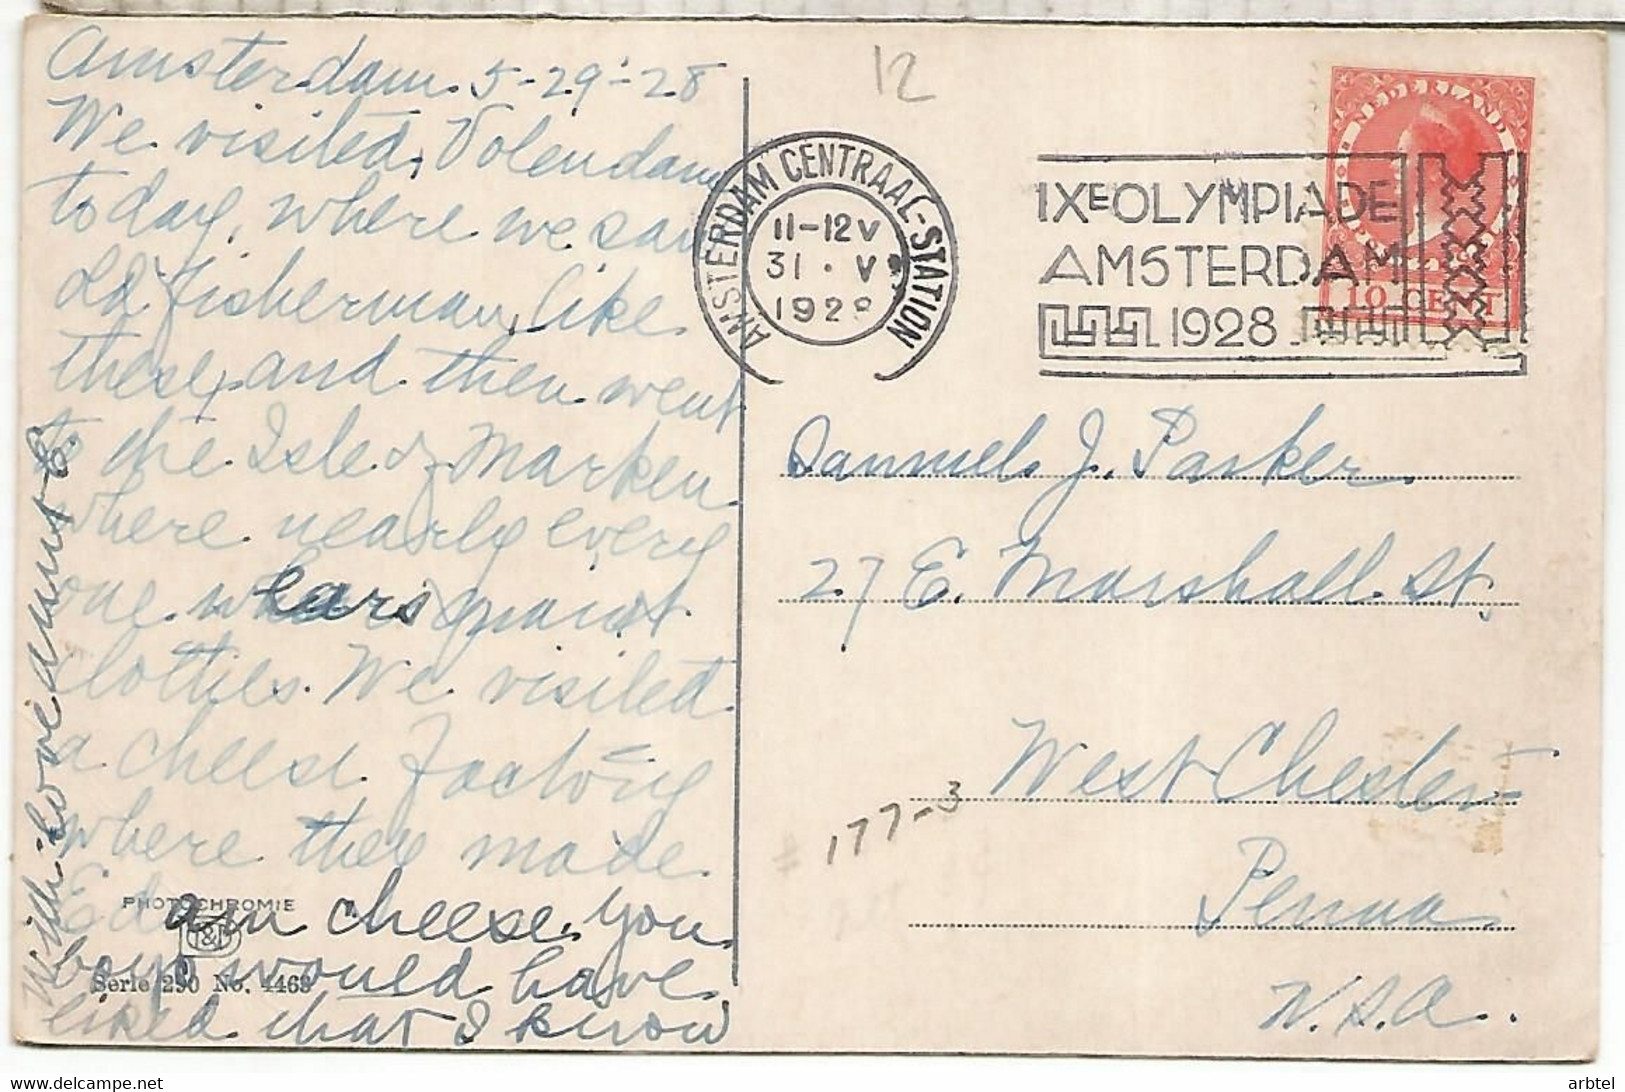 Amsterdam. 5-29-28
We visited, Volendam
today, where we saw
old fisherman, like
these, and then went
to the Isle of Marken
where nearly every
one wears quaint
clothes. We visited
a cheese factory
where they made
Edam cheese. You
boys would have
liked that I know
With love
PHOTOCHROMIE
Serie 290 No. 4463
12
AMSTERDAM CENTRAAL-STATION
11-12 V
31 . V
1928
IXE OLYMPIADE
AMSTERDAM
1928
NEDERLAND
10 CENT
Samuel J. Parker
27 E. Marshall St.
West Chester
Penna
U.S.A.
# 177-3
arbtel